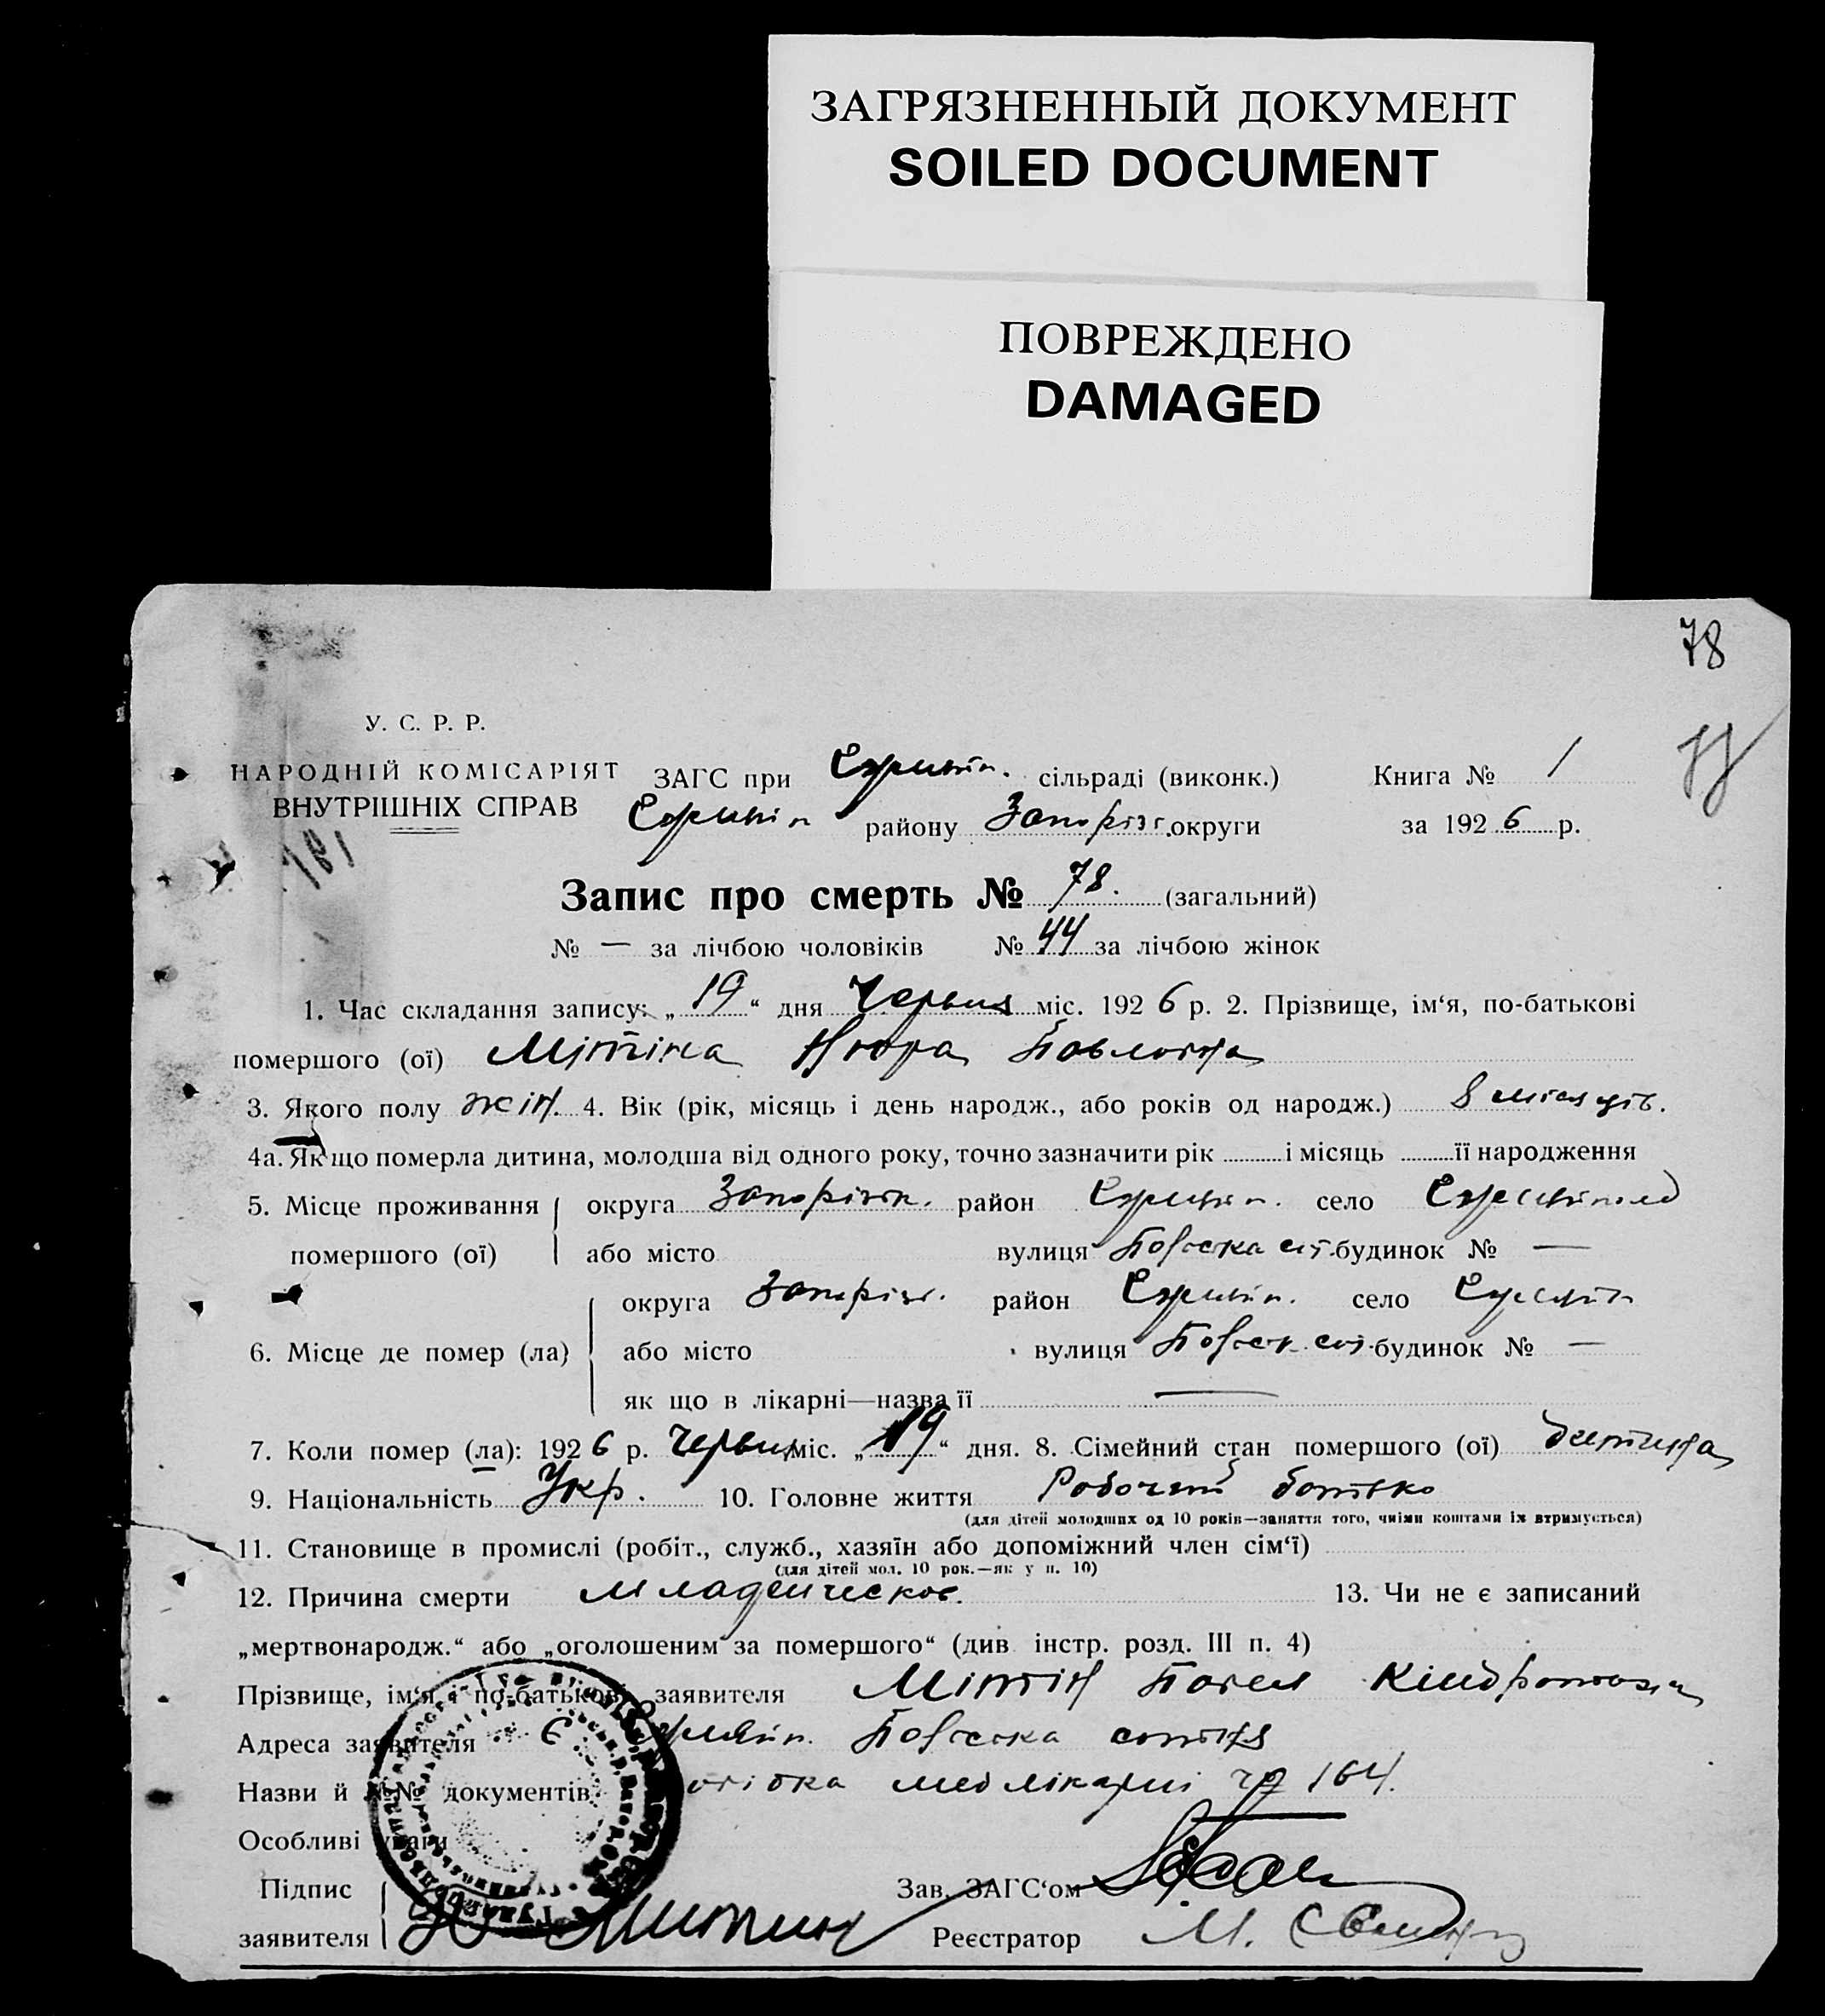 ЗАГРЯЗНЕННЫЙ ДОКУМЕНТ
SOILED DOCUMENT
ПОВРЕЖДЕНО
DAMAGED
78
У. С. Р. Р.
НАРОДНІЙ КОМІСАРІЯТ
ВНУТРІШНІХ СПРАВ
ЗАГС при сільраді (виконк.) Книга № 1
району Запоріз. округи за 1926 р.
Запис про смерть № 78. (загальний)
№ — за лічбою чоловіків № 44 за лічбою жінок
1. Час складання запису: „19“ дня Червня міс. 1926 р. 2. Прізвище, ім‘я, по-батькові
помершого (ої) Мітіна Нюра Павловна
3. Якого полу жін. 4. Вік (рік, місяць і день народж., або років од народж.) 8 місяців.
4а. Як що померла дитина, молодша від одного року, точно зазначити рік і місяць її народження
5. Місце проживання округа Запорізьк. район село
помершого (ої) або місто вулиця будинок № —
округа Запоріз. район село
6. Місце де помер (ла) або місто вулиця будинок № —
як що в лікарні—назва її —
7. Коли помер (ла): 1926 р. Червня міс. „19“ дня. 8. Сімейний стан помершого (ої) дитина
9. Національність Укр. 10. Головне життя Робочий батько
(для дітей молодших од 10 років—заняття того, чиїми коштами їх втримується)
11. Становище в промислі (робіт., служб., хазяїн або допоміжний член сім‘ї)
(для дітей мол. 10 рок.—як у п. 10)
12. Причина смерти младенческое. 13. Чи не є записаний
„мертвонародж.“ або „оголошеним за помершого“ (див інстр. розд. III п. 4)
Прізвище, ім‘я і по-батькові заявителя Мітін Павел
Адреса заявителя
Назви й №№ документів лікарні 164.
Особливі уваги
Підпис Зав. ЗАГС‘ом
заявителя Митин Реєстратор М.